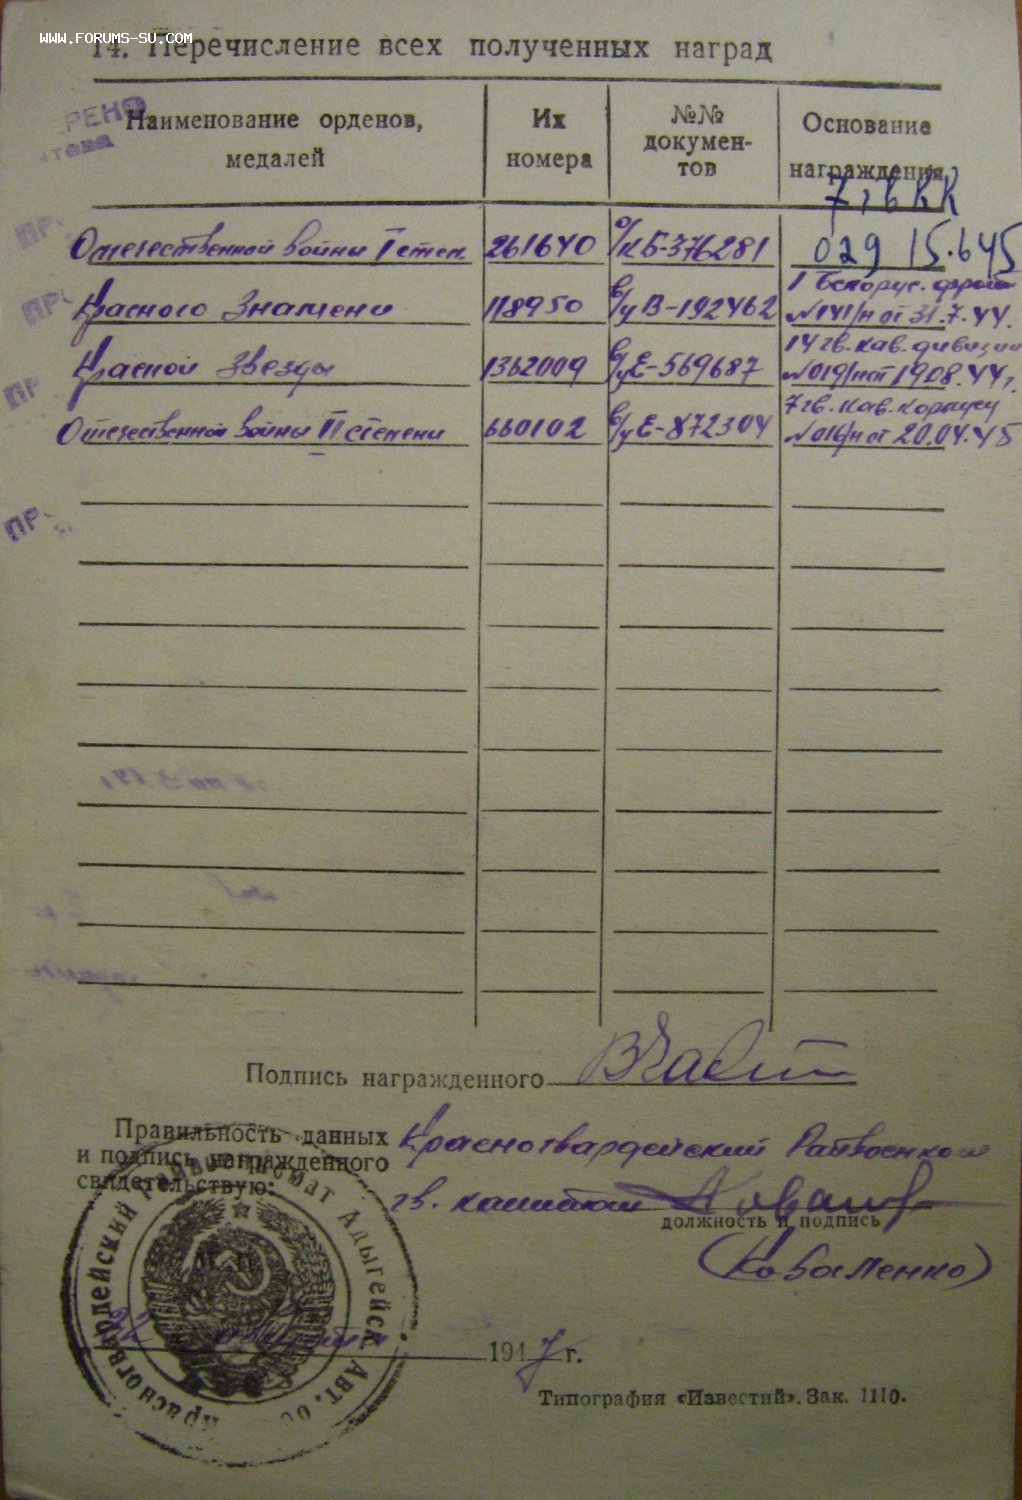 www.forums-su.com
14. Перечисление всех полученных наград
Наименование орденов, медалей
Их номера
№№ документов
Основание награждения
7 гв КК
Отечественной войны I степ. 261640 о/к Б-376281 029 15.6 45
Красного Знамени 118950 о/к В-192462 1 Белорус. фронт №141/н от 31.7.44.
Красной Звезды 1362009 в/у Е-569687 14 гв. кав. дивизии №019/н от 19.08.44 г.
Отечественной войны II степени 660102 в/у Е-872304 7 гв. кав. корпусу №016/н от 20.04.45
Подпись награжденного
Правильность данных Красногвардейский Райвоенком
и подпись награжденного
свидетельствую: гв. капитан
должность и подпись
(Коваленко)
Красногвардейский Райвоенкомат Адыгейск. Авт. об
22 1947 г.
Типография «Известий». Зак. 1110.